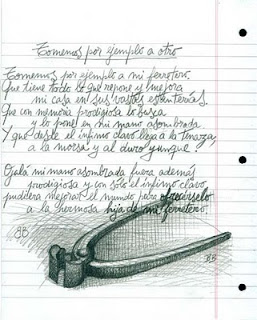 Tomemos por ejemplo a otro
Tomemos por ejemplo a mi ferretero
Que tiene todo lo que repone y mejora
mi casa en sus vastas estanterías.
Que con memoria prodigiosa lo busca
y lo pone en mi mano asombrada
Y que desde el ínfimo clavo llega a la tenaza
a la morsa y al duro yunque
Ojalá mi mano asombrada fuera además
prodigiosa y con sólo el ínfimo clavo
pudiera mejorar el mundo para ofrecérselo
a la hermosa hija de mi ferretero.